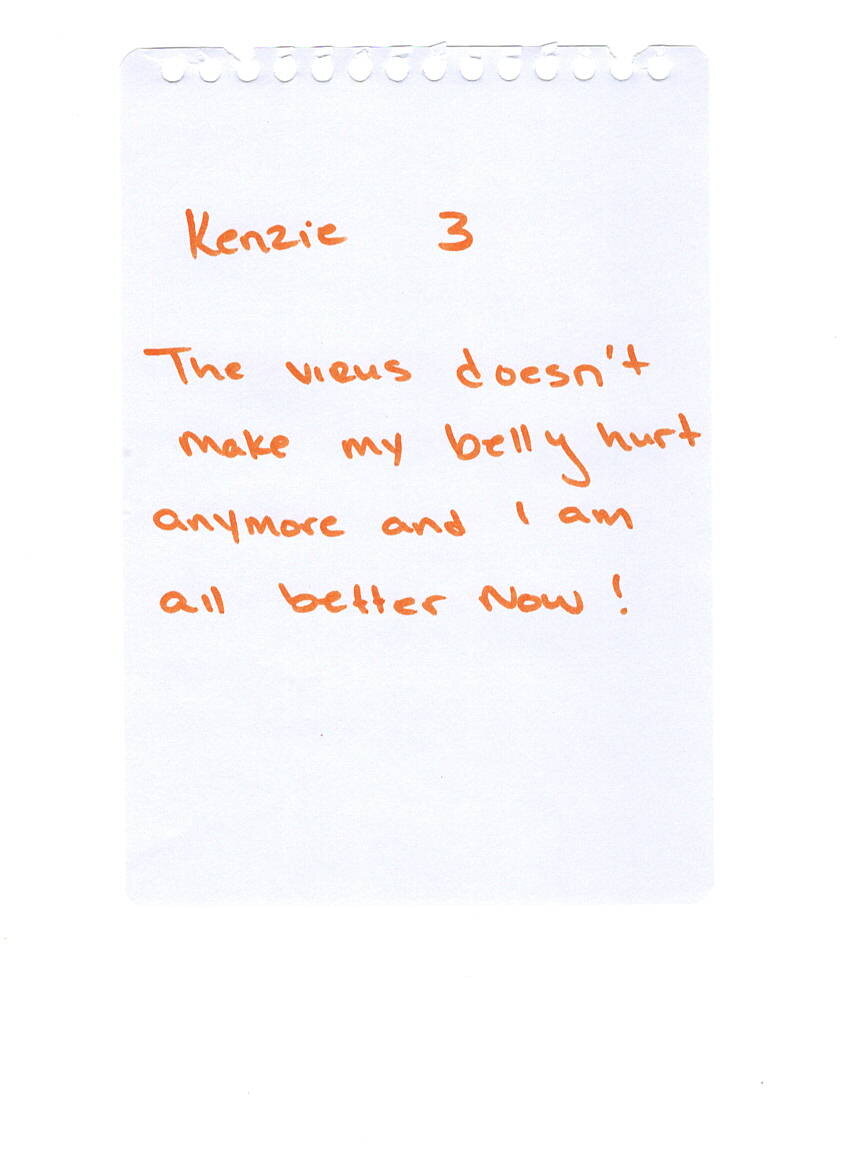 Kenzie 3
The virus doesn't
make my belly hurt
anymore and I am
all better Now!